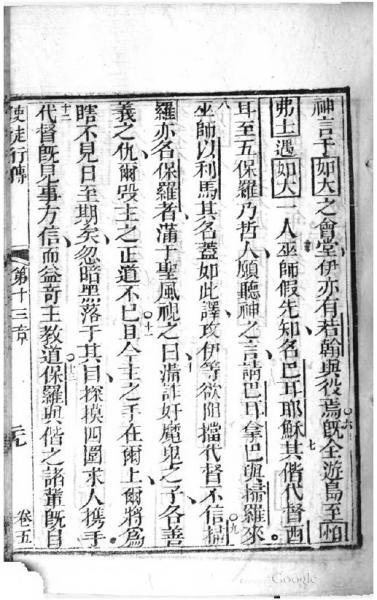 神言于如大之會堂伊亦有若翰與役焉○六既全遊島至啪
弗土遇如大一人巫師假先知名巴耳耶穌七其偕代督西
耳至五保羅乃哲人願聽神之言請巴耳拿巴與掃羅來
八巫師以利馬其名蓋如此譯攻伊等欲阻擋代督不信○九掃
羅亦名保羅者滿于聖風視之曰滿詐奸魔鬼之子各善
義之仇爾毀主之正道不已十一且今主之手在爾上爾將為
瞎不見日至期矣忽暗黑落于其目探摸四圍求人携手
十二代督既見事方信而益奇主教道十三保羅與偕之諸輩既自
使徒行傳 第十三章 卷五
Google